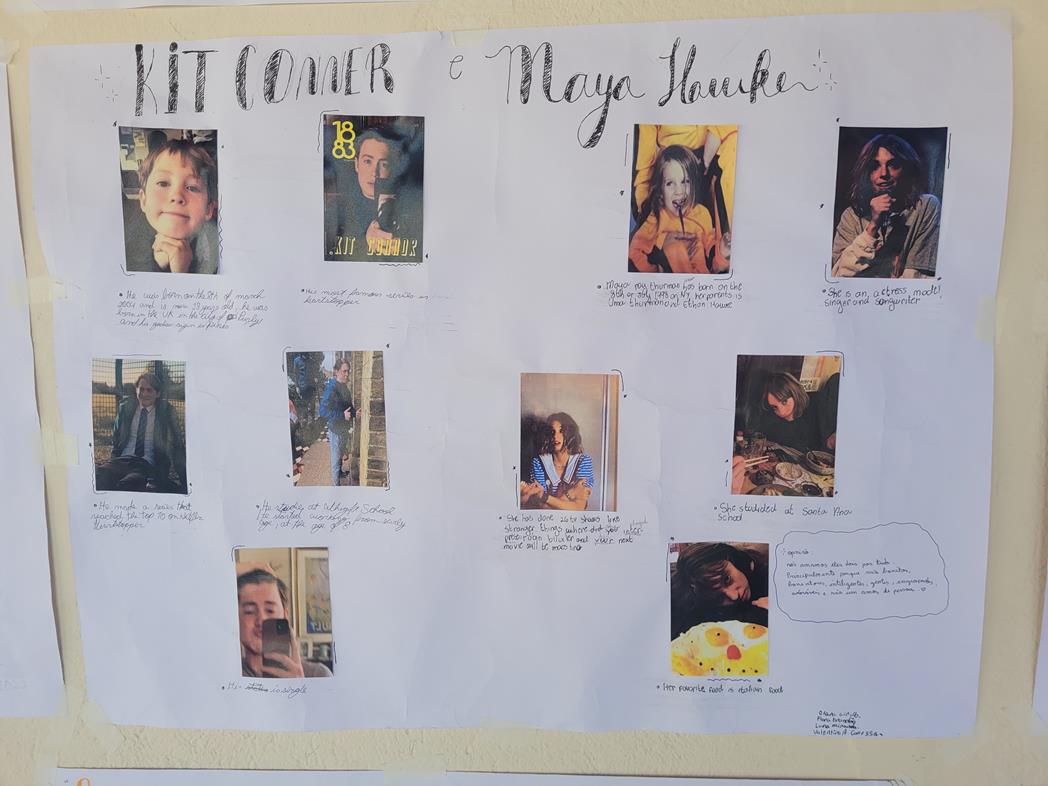 KIT CONNER e Maya Hawke
18
83
KIT CONNOR
• He was born on the 8th of march
2004 and is now 19 years old, he was
born in the UK in the city of Purley
and his zodiac sign is
• His most famous series is
heartstopper
• Maya ray thurman was born on the
8th of July 1998 on NY, her parents is
Uma thurman and Ethan Hawke
• She is an, actress, model,
singer and songwriter
• He made a series that
reached the top 10 on Netflix
Heartstopper
• He at School
He started acting from early
age, at the age of 8
• She has done tv shows like
stranger things where
and next
movie will be maestro
• She studied at Santa Ana
School
opnião:
nós amamos eles dois por tudo.
Principalmente porque são bonitos,
bons atores, inteligentes, gentis, engraçados,
adoráveis e são um amor de pessoa. ♡
• He is single
• Her favorite food is italian food
Luna